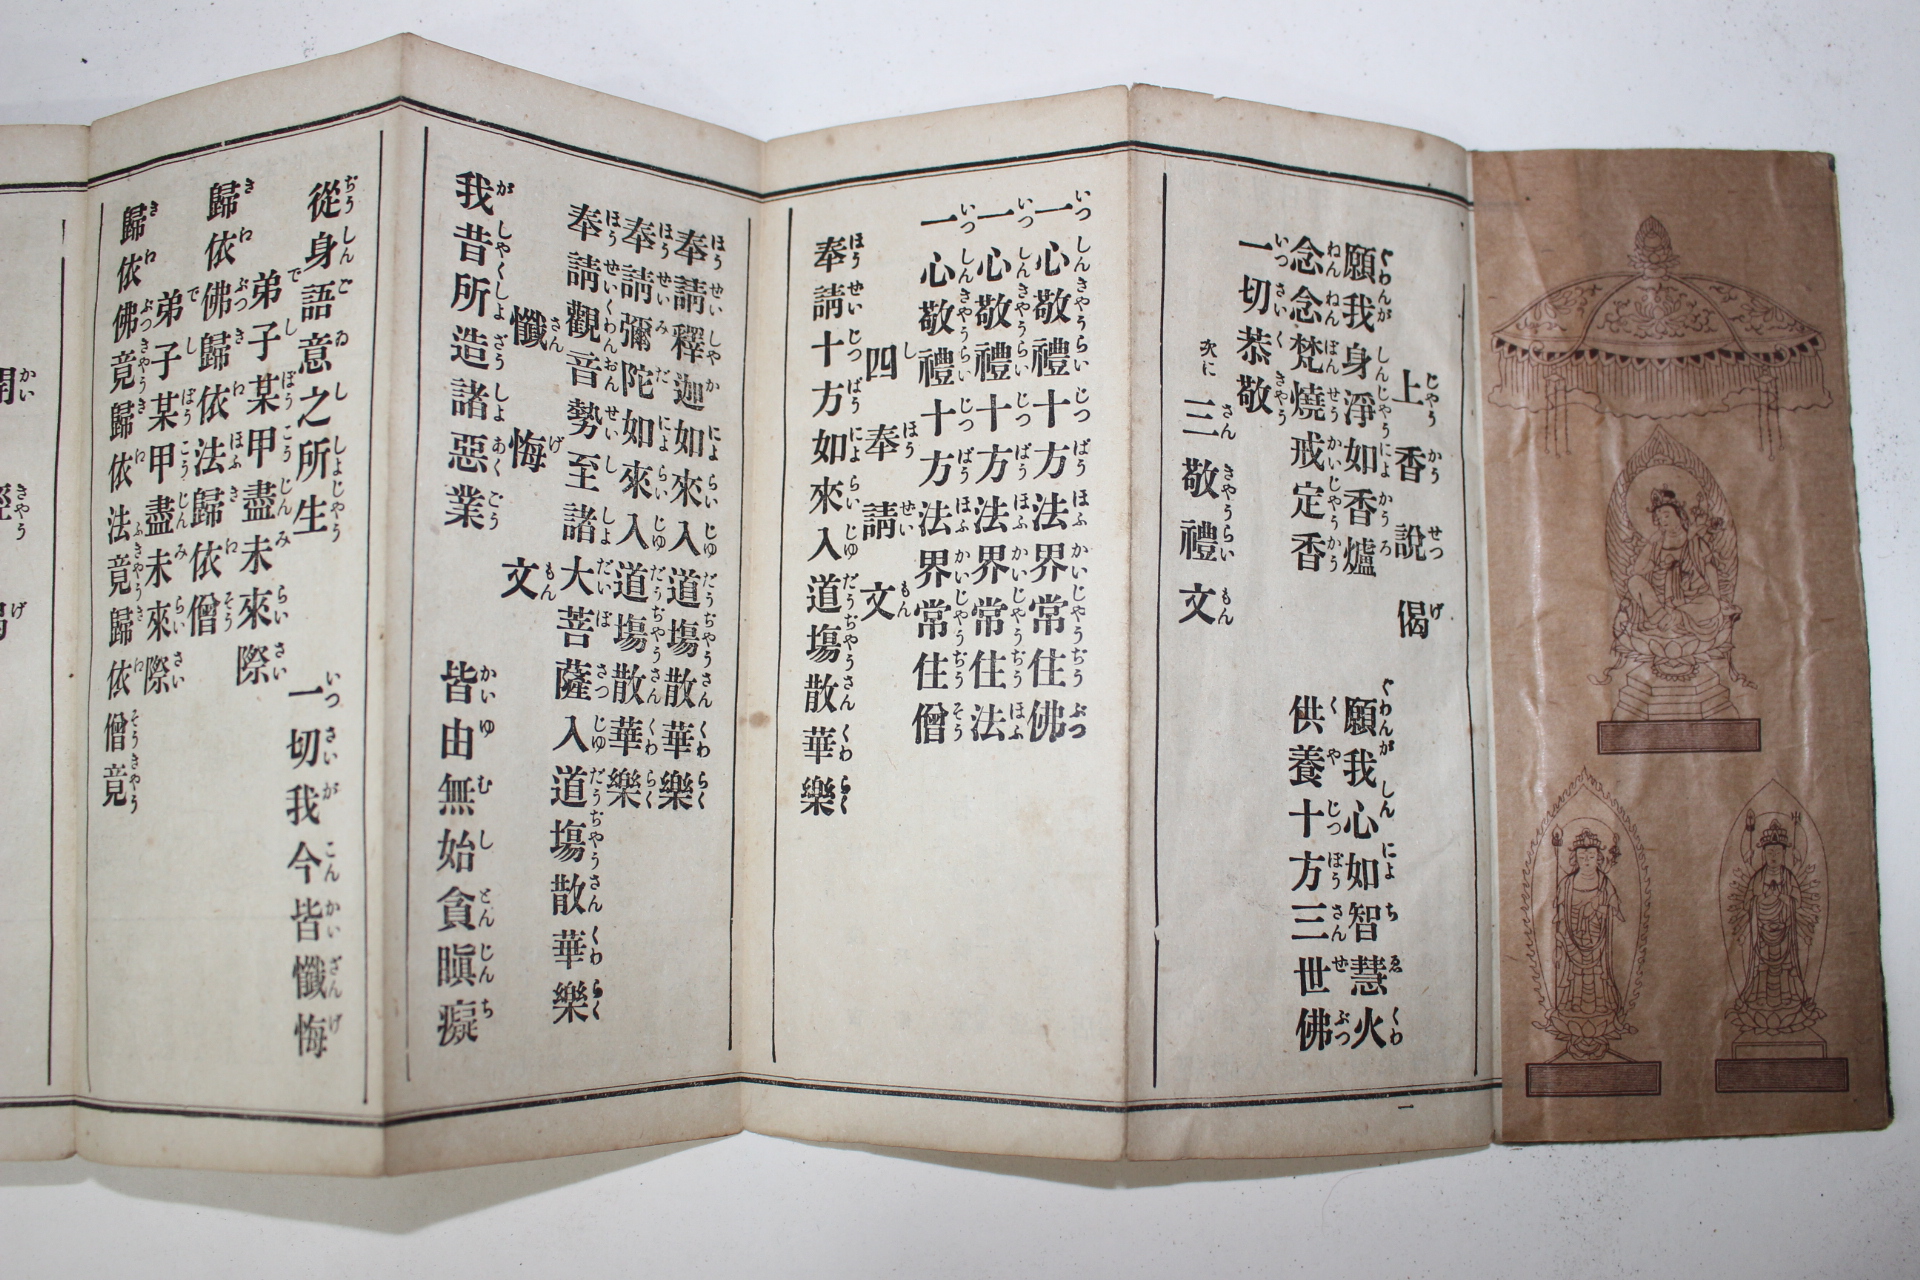 上香說偈
願我身淨如香爐　願我心如智慧火
念念梵燒戒定香　供養十方三世佛
一切恭敬
次に　三敬禮文
一
一心敬禮十方法界常住佛
一心敬禮十方法界常住法
一心敬禮十方法界常住僧
四奉請文
奉請十方如來入道塲散華樂
奉請釋迦如來入道塲散華樂
奉請彌陀如來入道塲散華樂
奉請觀音勢至諸大菩薩入道塲散華樂
懺悔文
我昔所造諸惡業　皆由無始貪瞋癡
從身語意之所生　一切我今皆懺悔
弟子某甲盡未來際
歸依佛歸依法歸依僧
弟子某甲盡未來際
歸依佛竟歸依法竟歸依僧竟